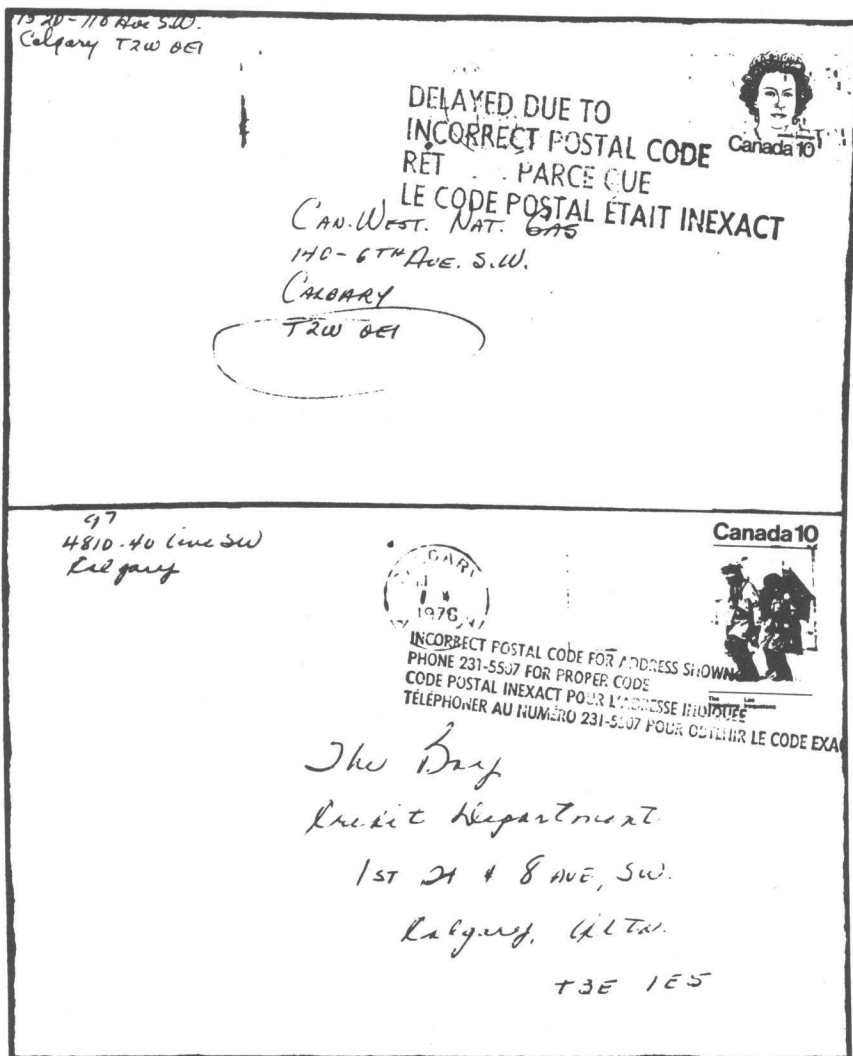 1520-110 Ave S.W.
Calgary T2W 0E1
DELAYED DUE TO
INCORRECT POSTAL CODE
RET PARCE QUE
LE CODE POSTAL ÉTAIT INEXACT
Canada 10
CAN. WEST. NAT. GAS
140-6TH AVE. S.W.
CALGARY
T2W 0E1
97
4810-40 Ave SW
Calgary
CALGARY
1976
Canada 10
INCORRECT POSTAL CODE FOR ADDRESS SHOWN
PHONE 231-5507 FOR PROPER CODE
CODE POSTAL INEXACT POUR L'ADRESSE INDIQUÉE
TÉLÉPHONER AU NUMÉRO 231-5507 POUR OBTENIR LE CODE EXA
The Bay
Credit Department
1ST St & 8 AVE, SW.
Calgary, ALTA.
T3E 1E5